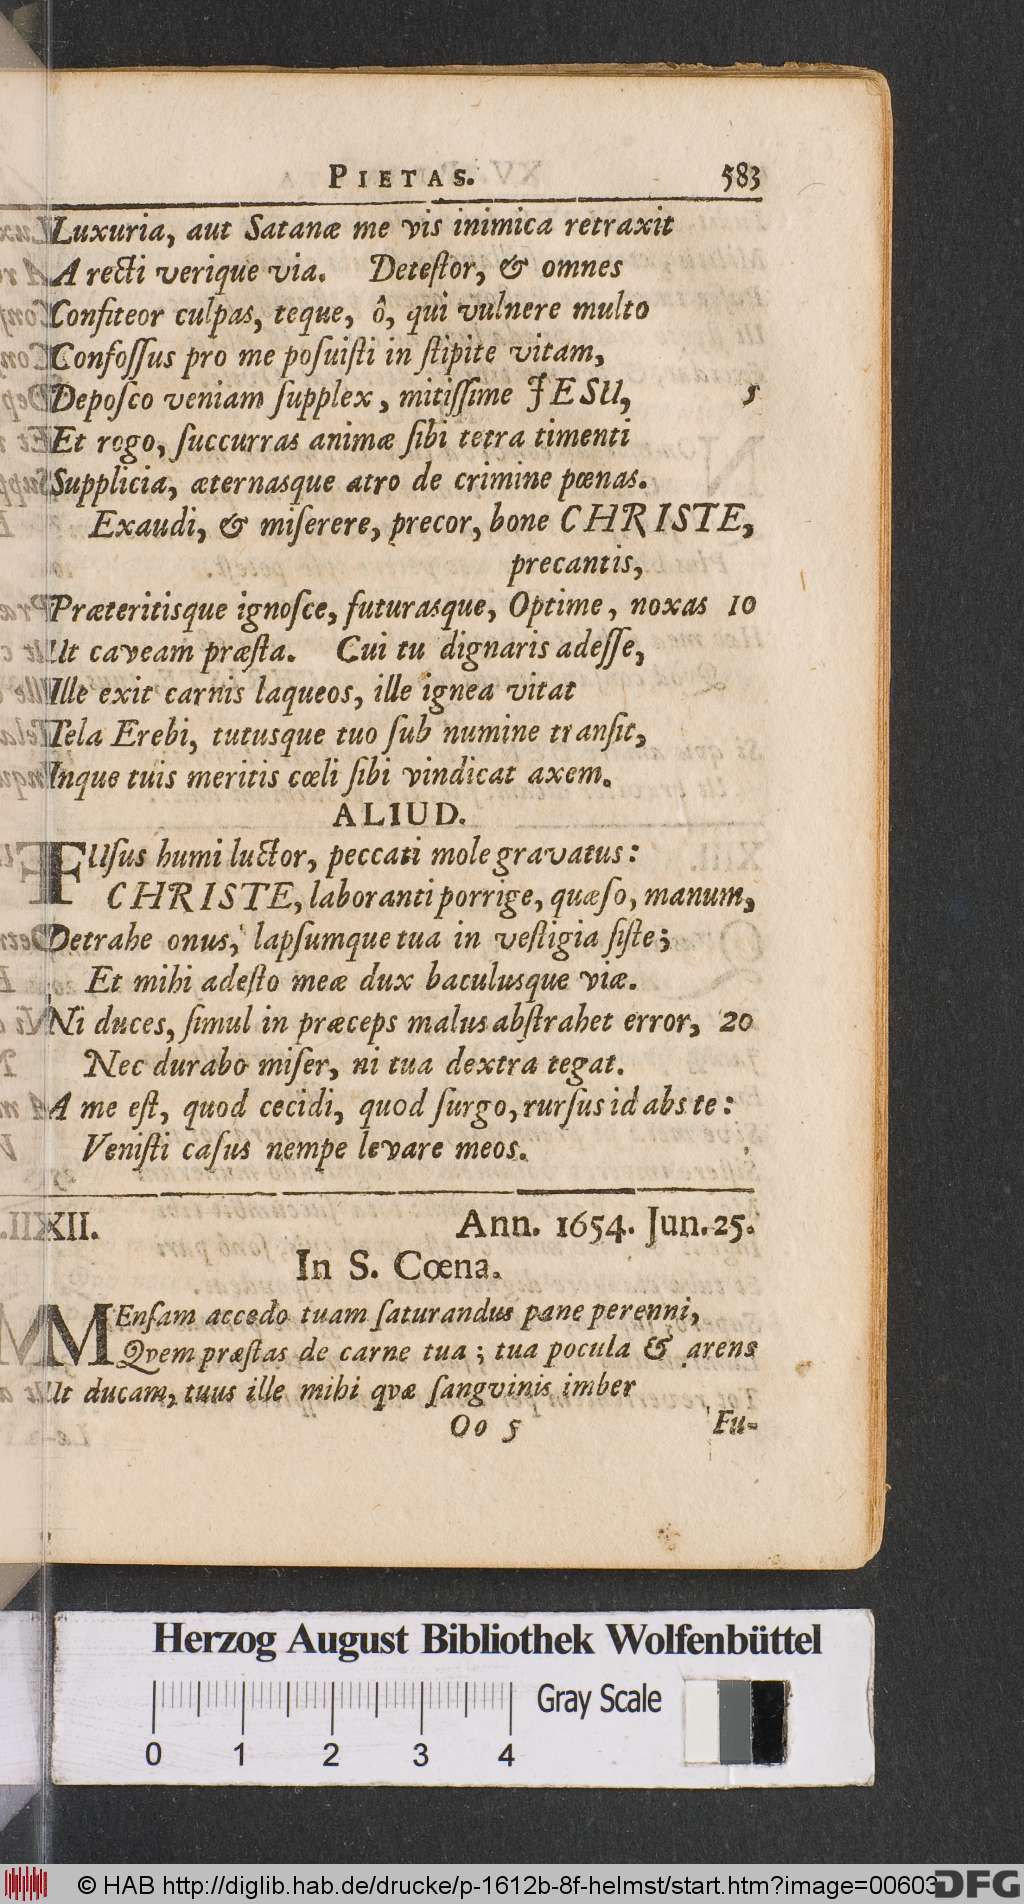 PIETAS. 583
Luxuria, aut Satanæ me vis inimica retraxit
A recti verique via. Deteſtor, & omnes
Confiteor culpas, teque, ô, qui vulnere multo
Confoſſus pro me poſuiſti in ſtipite vitam,
Depoſco veniam ſupplex, mitiſſime JESU, 5
Et rogo, ſuccurras animæ ſibi tetra timenti
Supplicia, æternasque atro de crimine pœnas.
Exaudi, & miſerere, precor, bone CHRISTE,
precantis,
Præteritisque ignoſce, futurasque, Optime, noxas 10
Ut caveam præſta. Cui tu dignaris adeſſe,
Ille exit carnis laqueos, ille ignea vitat
Tela Erebi, tutusque tuo ſub numine tranſit,
Inque tuis meritis cœli ſibi vindicat axem.
ALIUD.
FUſus humi luctor, peccati mole gravatus:
CHRISTE, laboranti porrige, quæſo, manum,
Detrahe onus, lapſumque tua in veſtigia ſiſte;
Et mihi adeſto meæ dux baculusque viæ.
Ni duces, ſimul in præceps malus abſtrahet error, 20
Nec durabo miſer, ni tua dextra tegat.
A me eſt, quod cecidi, quod ſurgo, rurſus id abs te:
Veniſti caſus nempe levare meos.
XII. Ann. 1654. Jun. 25.
In S. Cœna.
MEnſam accedo tuam ſaturandus pane perenni,
Qvem præſtas de carne tua; tua pocula & arens
Ut ducam, tuus ille mihi qvæ ſangvinis imber
Oo 5 Fu-
Herzog August Bibliothek Wolfenbüttel
Gray Scale
0 1 2 3 4
© HAB http://diglib.hab.de/drucke/p-1612b-8f-helmst/start.htm?image=00603
DFG